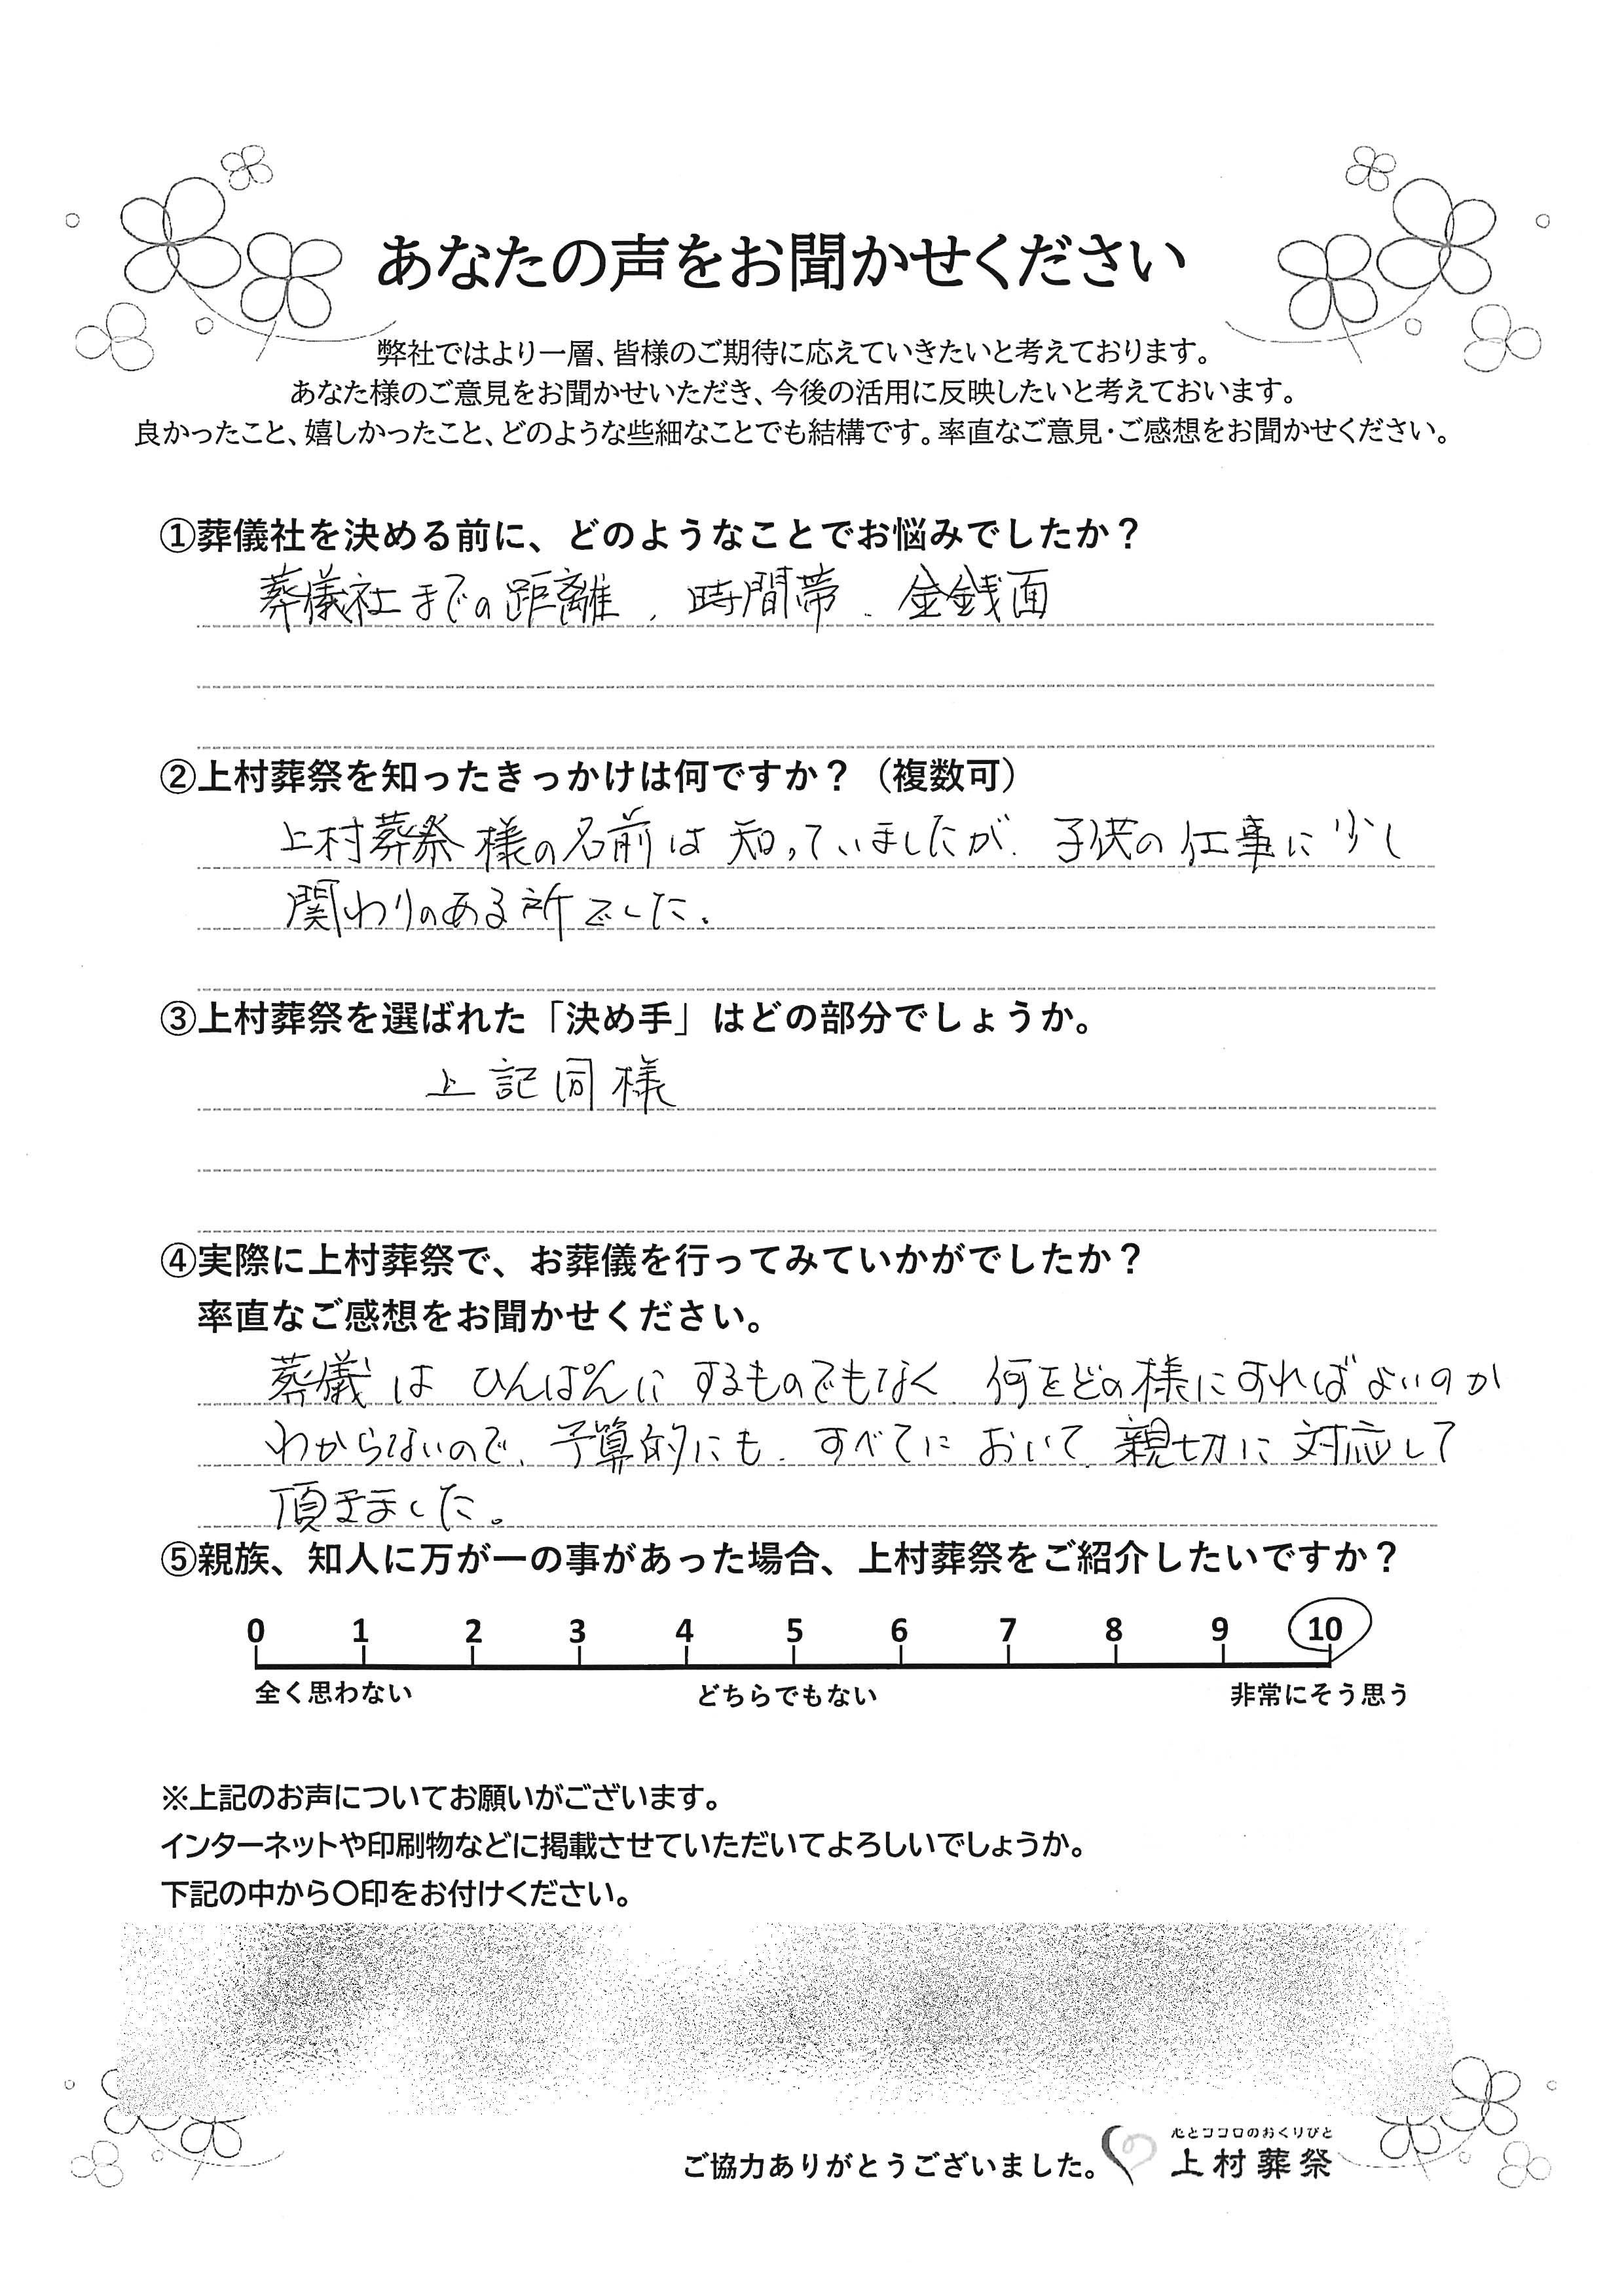 あなたの声をお聞かせください
弊社ではより一層、皆様のご期待に応えていきたいと考えております。
あなた様のご意見をお聞かせいただき、今後の活用に反映したいと考えておいます。
良かったこと、嬉しかったこと、どのような些細なことでも結構です。率直なご意見・ご感想をお聞かせください。
①葬儀社を決める前に、どのようなことでお悩みでしたか？
葬儀社までの距離、時間帯、金銭面
②上村葬祭を知ったきっかけは何ですか？（複数可）
上村葬祭様の名前は知っていましたが、子供の仕事に少し
関わりのある所でした。
③上村葬祭を選ばれた「決め手」はどの部分でしょうか。
上記同様
④実際に上村葬祭で、お葬儀を行ってみていかがでしたか？
率直なご感想をお聞かせください。
葬儀はひんぱんにするものでもなく、何をどの様にすればよいのか
わからないので、予算的にも、すべてにおいて、親切に対応して
頂きました。
⑤親族、知人に万が一の事があった場合、上村葬祭をご紹介したいですか？
0 1 2 3 4 5 6 7 8 9 10
全く思わない どちらでもない 非常にそう思う
※上記のお声についてお願いがございます。
インターネットや印刷物などに掲載させていただいてよろしいでしょうか。
下記の中から〇印をお付けください。
心とココロのおくりびと
ご協力ありがとうございました。 上村葬祭